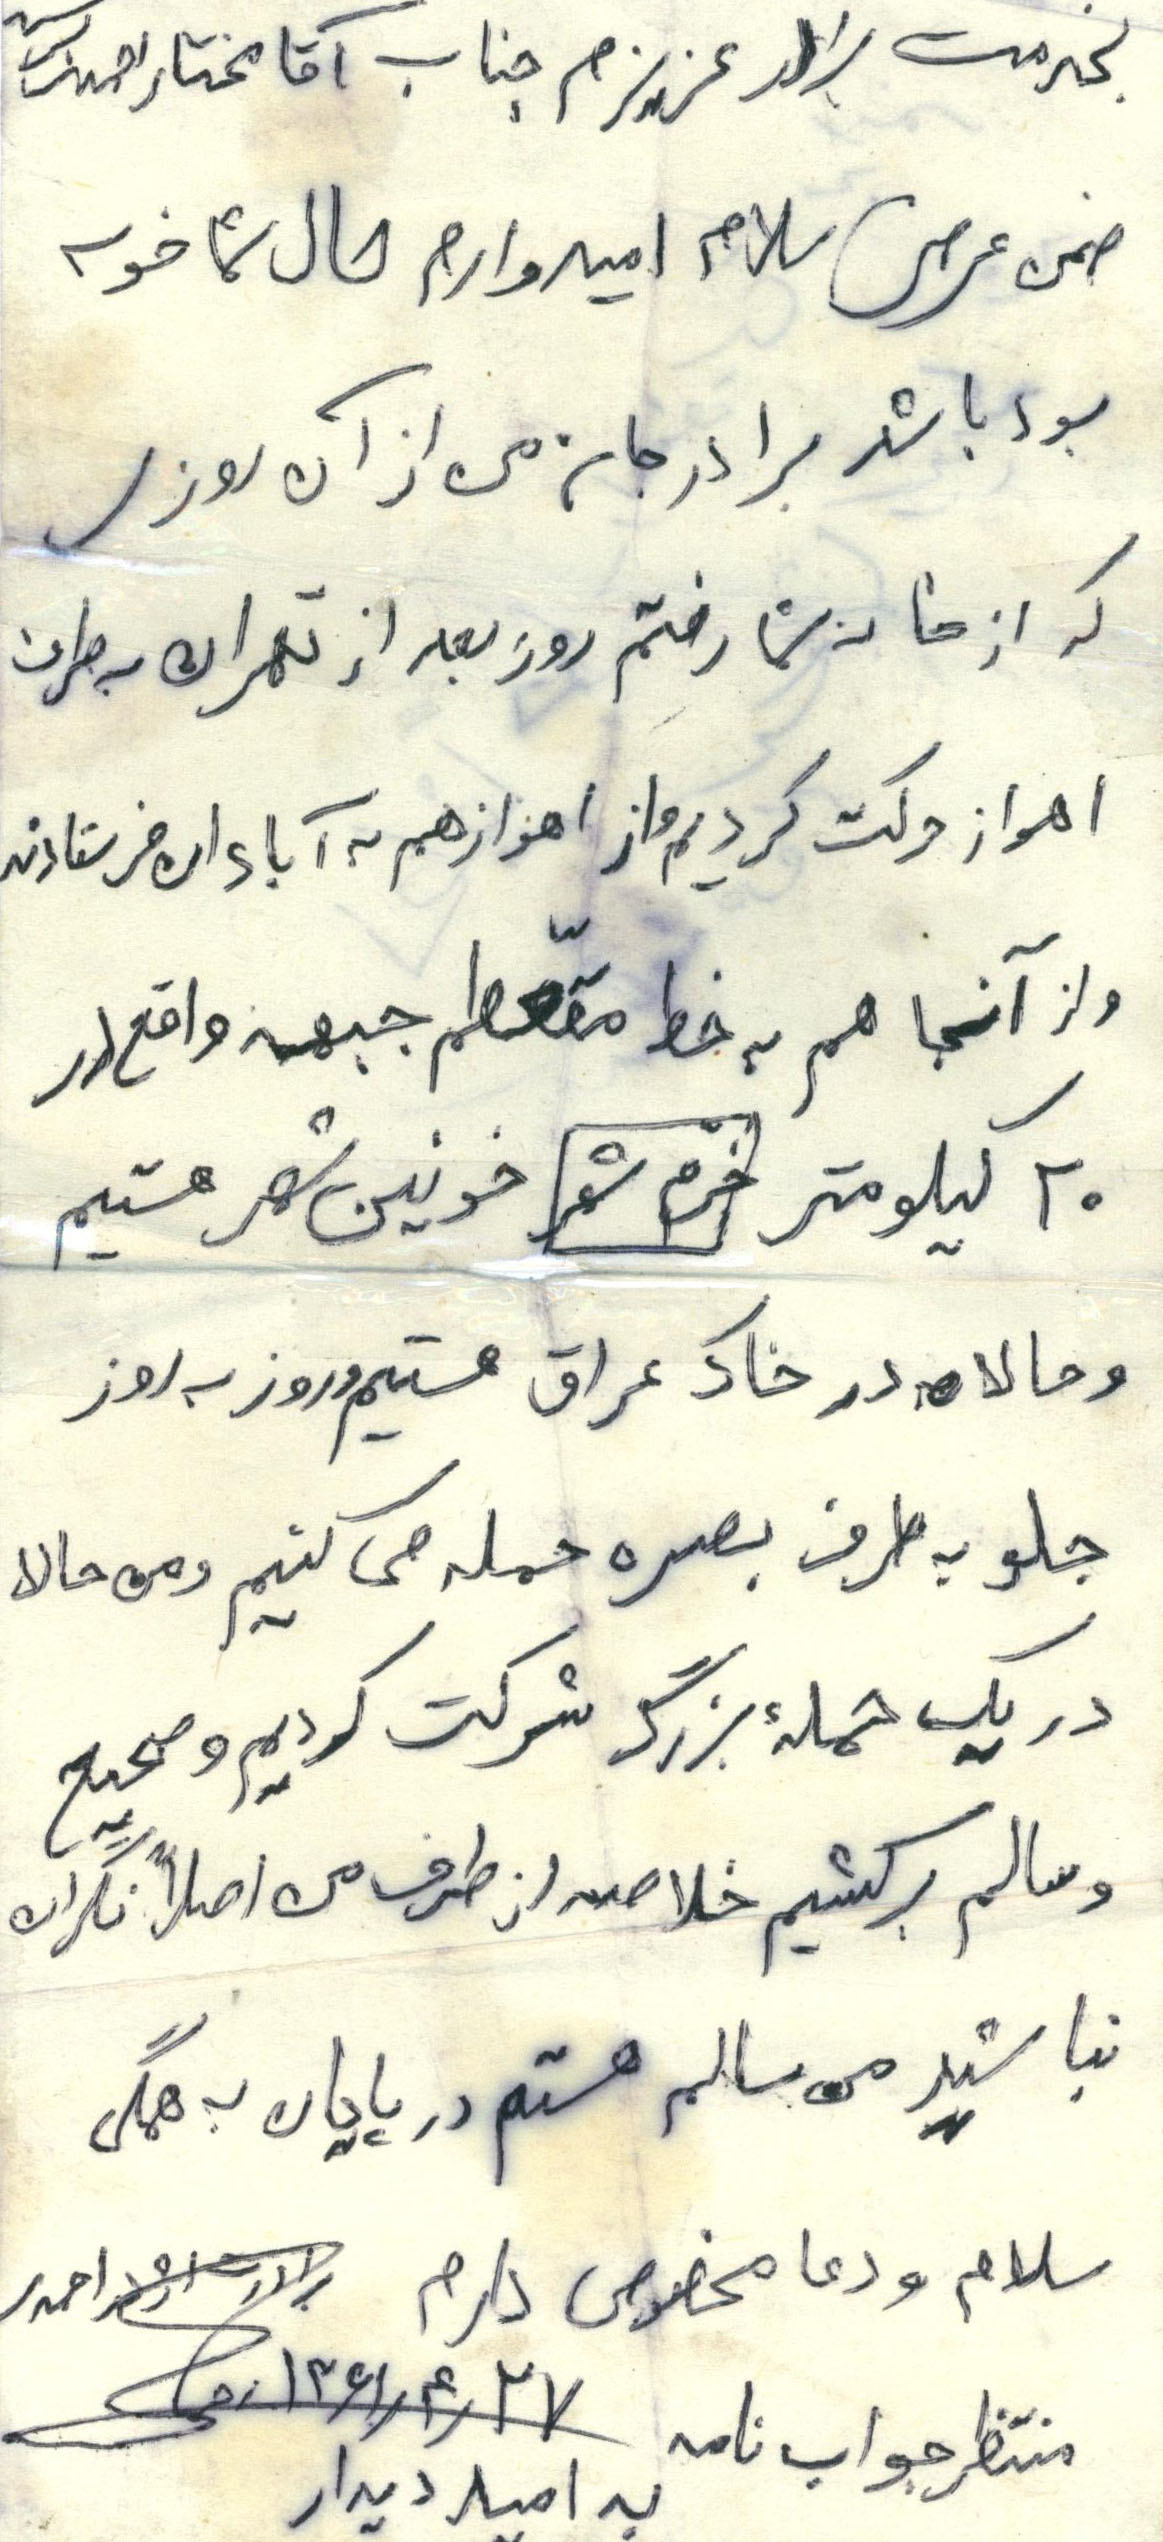 بخدمت برادر عزیزم جناب آقا مختار
ضمن عرض سلام امیدوارم حال شما خوب
بوده باشد برادر جان من از آن روزی
که از خانه شما رفتم روز بعد از تهران به طرف
اهواز حرکت کردیم و از اهواز هم به آبادان فرستادند
و از آنجا هم به خط جبهه واقع در
۲۰ کیلومتر خرّم شهر خونین شهر هستیم
و حالا در خاک عراق هستیم و روز به روز
جلو به طرف بصره حمله می کنیم و من حالا
در یک حملهٔ بزرگ شرکت کردیم و صحیح
و سالم برگشتیم خلاصه از طرف من اصلاً نگران
نباشید من سالم هستم در پایان به همگی
سلام و دعا مخصوص دارم برادرت
۲۷ ر ۴ ر ۱۳۶۱
منتظر جواب نامه
به امید دیدار